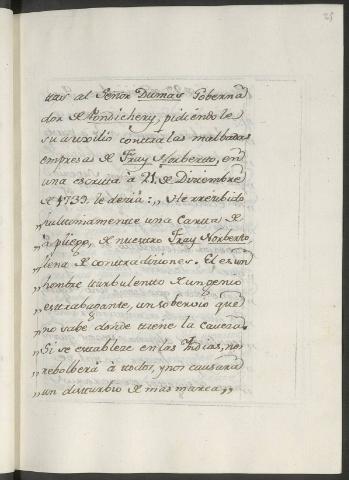 25
ttas al Señor Dumas Goberna
dor de Pondichery, pidiendole
su auxilio contra las malbadas
empresas de Fray Norberto, en
una escrita à 21 de Diciembre
de 1739. le decia: „ He recibido
„ ultimamente una Carta de
„ de nuestro Fray Norberto,
„ llena de contradiziones. El es un
„ hombre turbulento de un genio
„ extrabagante, un sobervio que
„ no sabe donde tiene la caveza.
„ Si se establece en las Indias, nos
„ rebolberá à todos, y nos causará
„ un disturbio de mas marca „